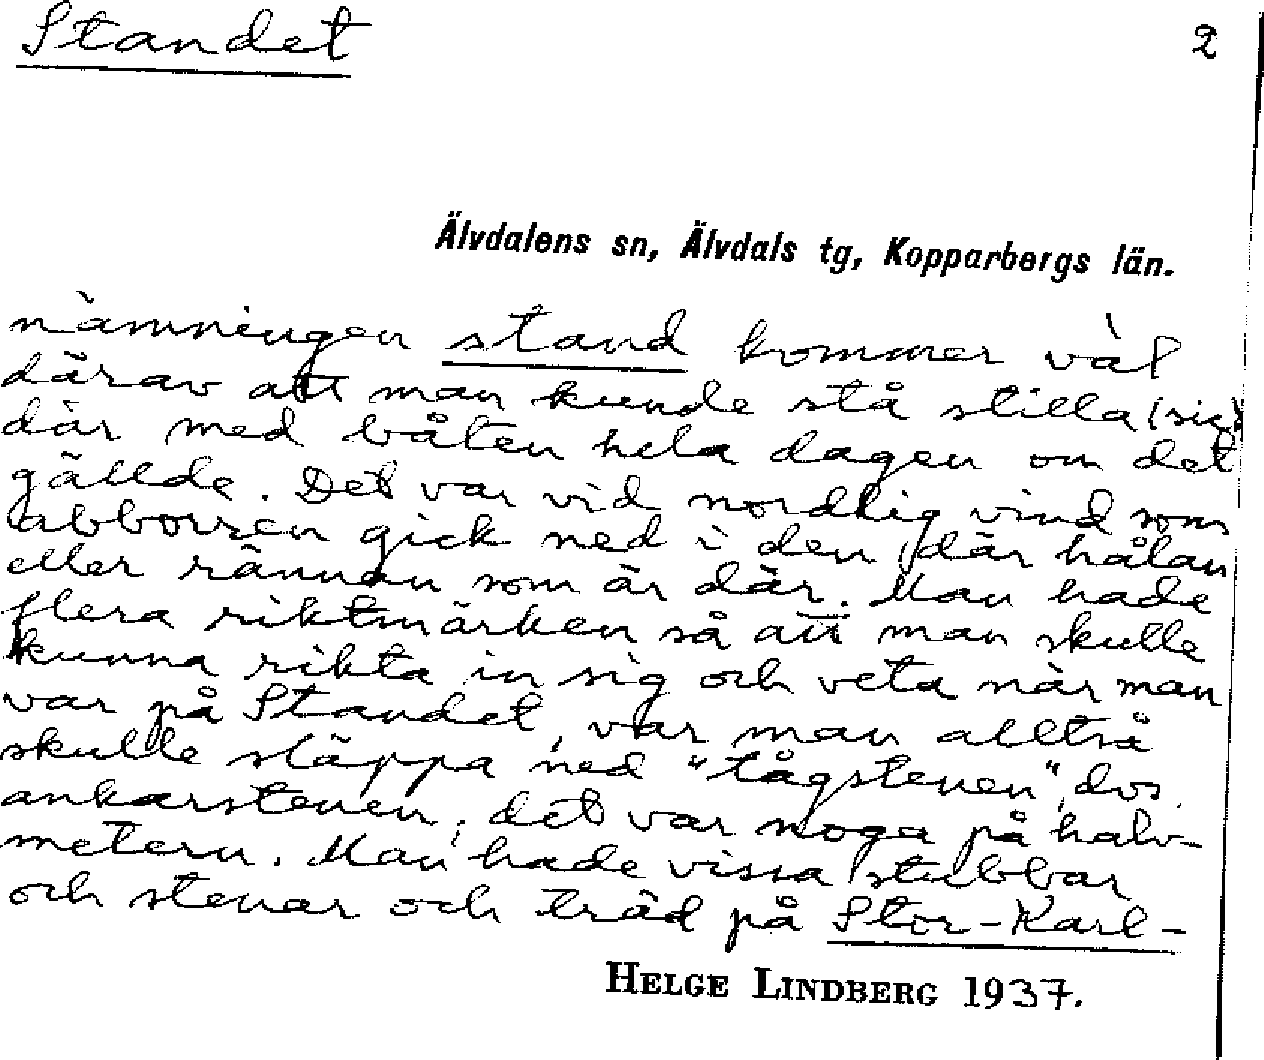 Standet 2
Älvdalens sn, Älvdals tg, Kopparbergs län.
nämningen stand kommer väl
därav att man kunde stå stilla (sig)
där med båten hela dagen om det
gällde. Det var vid nordlig vind som
abborren gick ned i den där hålan
eller rännan som är där. Man hade
flera riktmärken så att man skulle
kunna rikta in sig och veta när man
var på Standet, var man alltså
skulle släppa ned "tågstenen", dvs.
ankarstenen; det var noga på halv-
metern. Man hade vissa stubbar
och stenar och träd på Stor-Karl-
HELGE LINDBERG 1937.